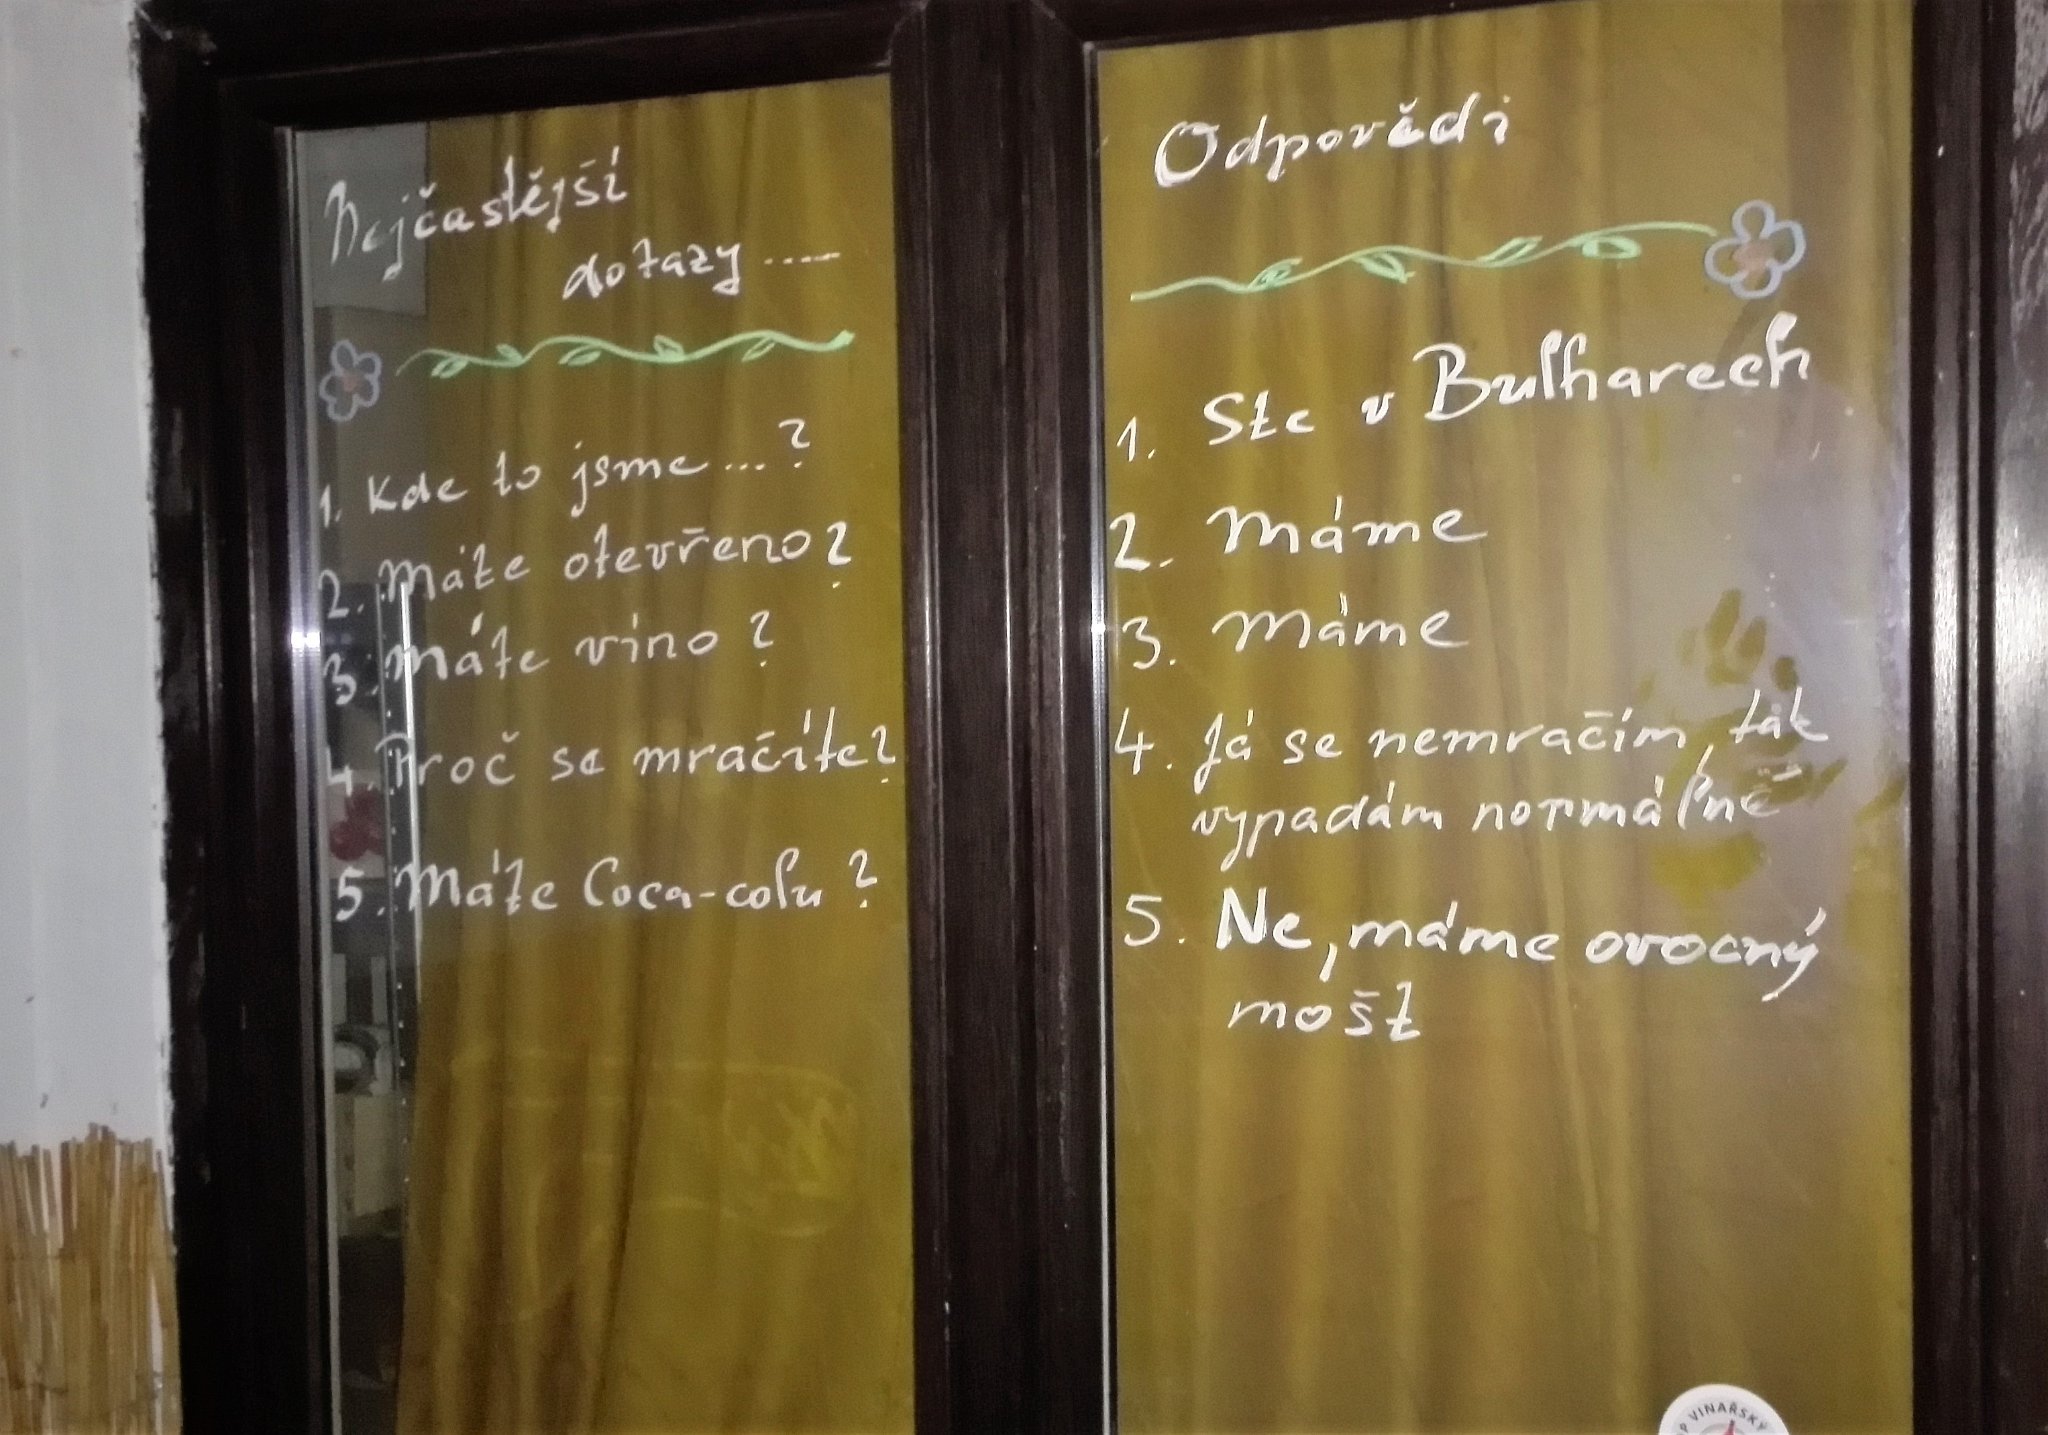 Nejčastější
dotazy .....
1. Kde to jsme ...?
2. Máte otevřeno?
3. Máte víno?
4. Proč se mračíte?
5. Máte Coca-colu?
Odpovědi
1. Ste v Bulharech
2. Máme
3. Máme
4. Já se nemračím, tak
vypadám normálně
5. Ne, máme ovocný
mošt
VINAŘSKÝ